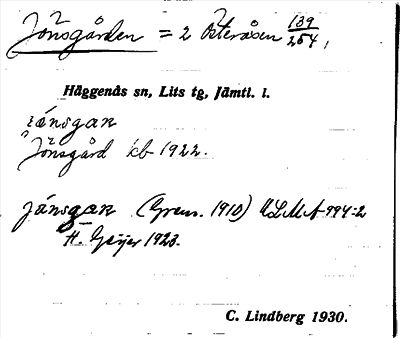 Jönsgården = 2 Österåsen 139/254,
Häggenås sn, Lits tg, Jämtl. l.
jánsgan
Jönsgård kb 1922.
jánsgan (Gren. 1910) ULMA 994:2
H. Geijer 1923.
C. Lindberg 1930.